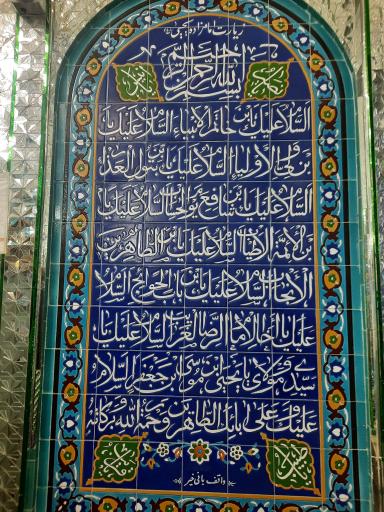 زیارت امامزاده یحیی
بسم الله الرحمن الرحیم
السلام علیک یابن خاتم الانبیاء السلام علیک یا
بن ولی الاولیاء السلام علیک یابن بتول العذ
السلام علیک یابن شافع یوم الجزاء السلام علیک یا
بن الائمة الاطیاب السلام علیک یابن الطاهرین
الانجاب السلام علیک یابن باب الحوائج السلا
علیک یا اخا الامام الرضا الغریب السلام علیک یا
سیدی و مولای یا یحیی ابن موسی ابن جعفر السلام
علیک و علی ابائک الطاهرین و رحمة الله و برکاته
واقف بانی خیر